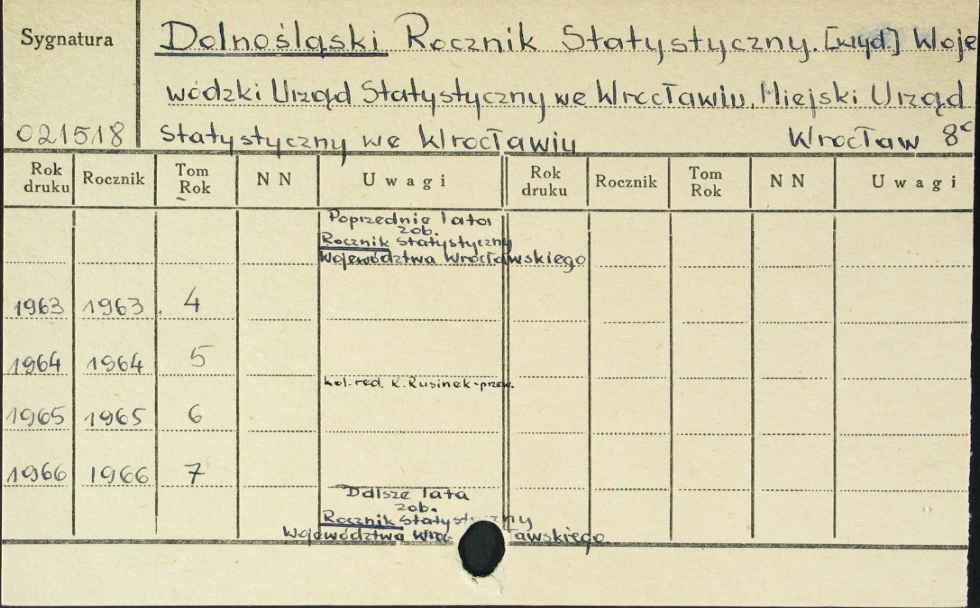 Sygnatura
Dolnośląski Rocznik Statystyczny. [wyd.] Woje
wódzki Urząd Statystyczny we Wrocławiu, Miejski Urząd
021518 Statystyczny we Wrocławiu Wrocław 8°
Rok druku Rocznik Tom Rok NN Uwagi Rok druku Rocznik Tom Rok NN Uwagi
Poprzednie lata
zob.
Rocznik Statystyczny
Województwa Wrocławskiego
1963 1963 4
1964 1964 5
kol. red. K. Rusinek-przew.
1965 1965 6
1966 1966 7
Dalsze lata
zob.
Rocznik Statystyczny
Województwa Wroc ławskiego